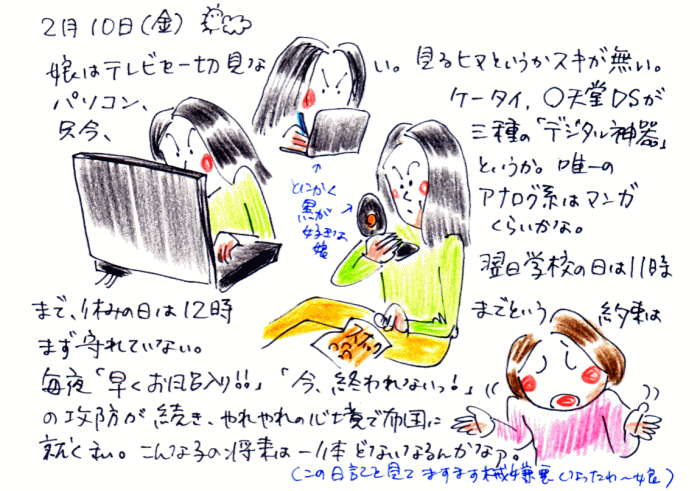 2月10日(金)
娘はテレビを一切見ない。見るヒマというかスキが無い。
パソコン、ケータイ、〇天堂DSが
只今、三種の「デジタル神器」
というか。唯一の
アナログ系はマンガ
くらいかな。
とにかく
黒が
好きな
娘
翌日学校の日は11時
まで、休みの日は12時までという約束は
まず守れていない。
スナック
毎夜「早くお風呂入り!!」「今、終われないっ!」
の攻防が続き、やれやれの心境で布団に
就く私。こんな子の将来は一体どないなるんかなァ。
(この日記を見てますます機嫌悪くなったわ〜娘)